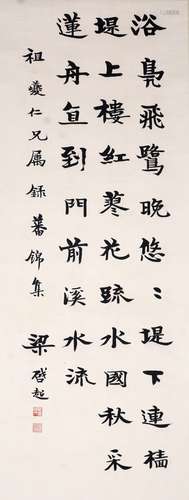 浴鳧飛鷺晚悠〻堤下連檣
堤上樓紅蓼花疏水國秋采
蓮舟直到門前溪水流
祖夔仁兄属録蕃錦集
梁啓超